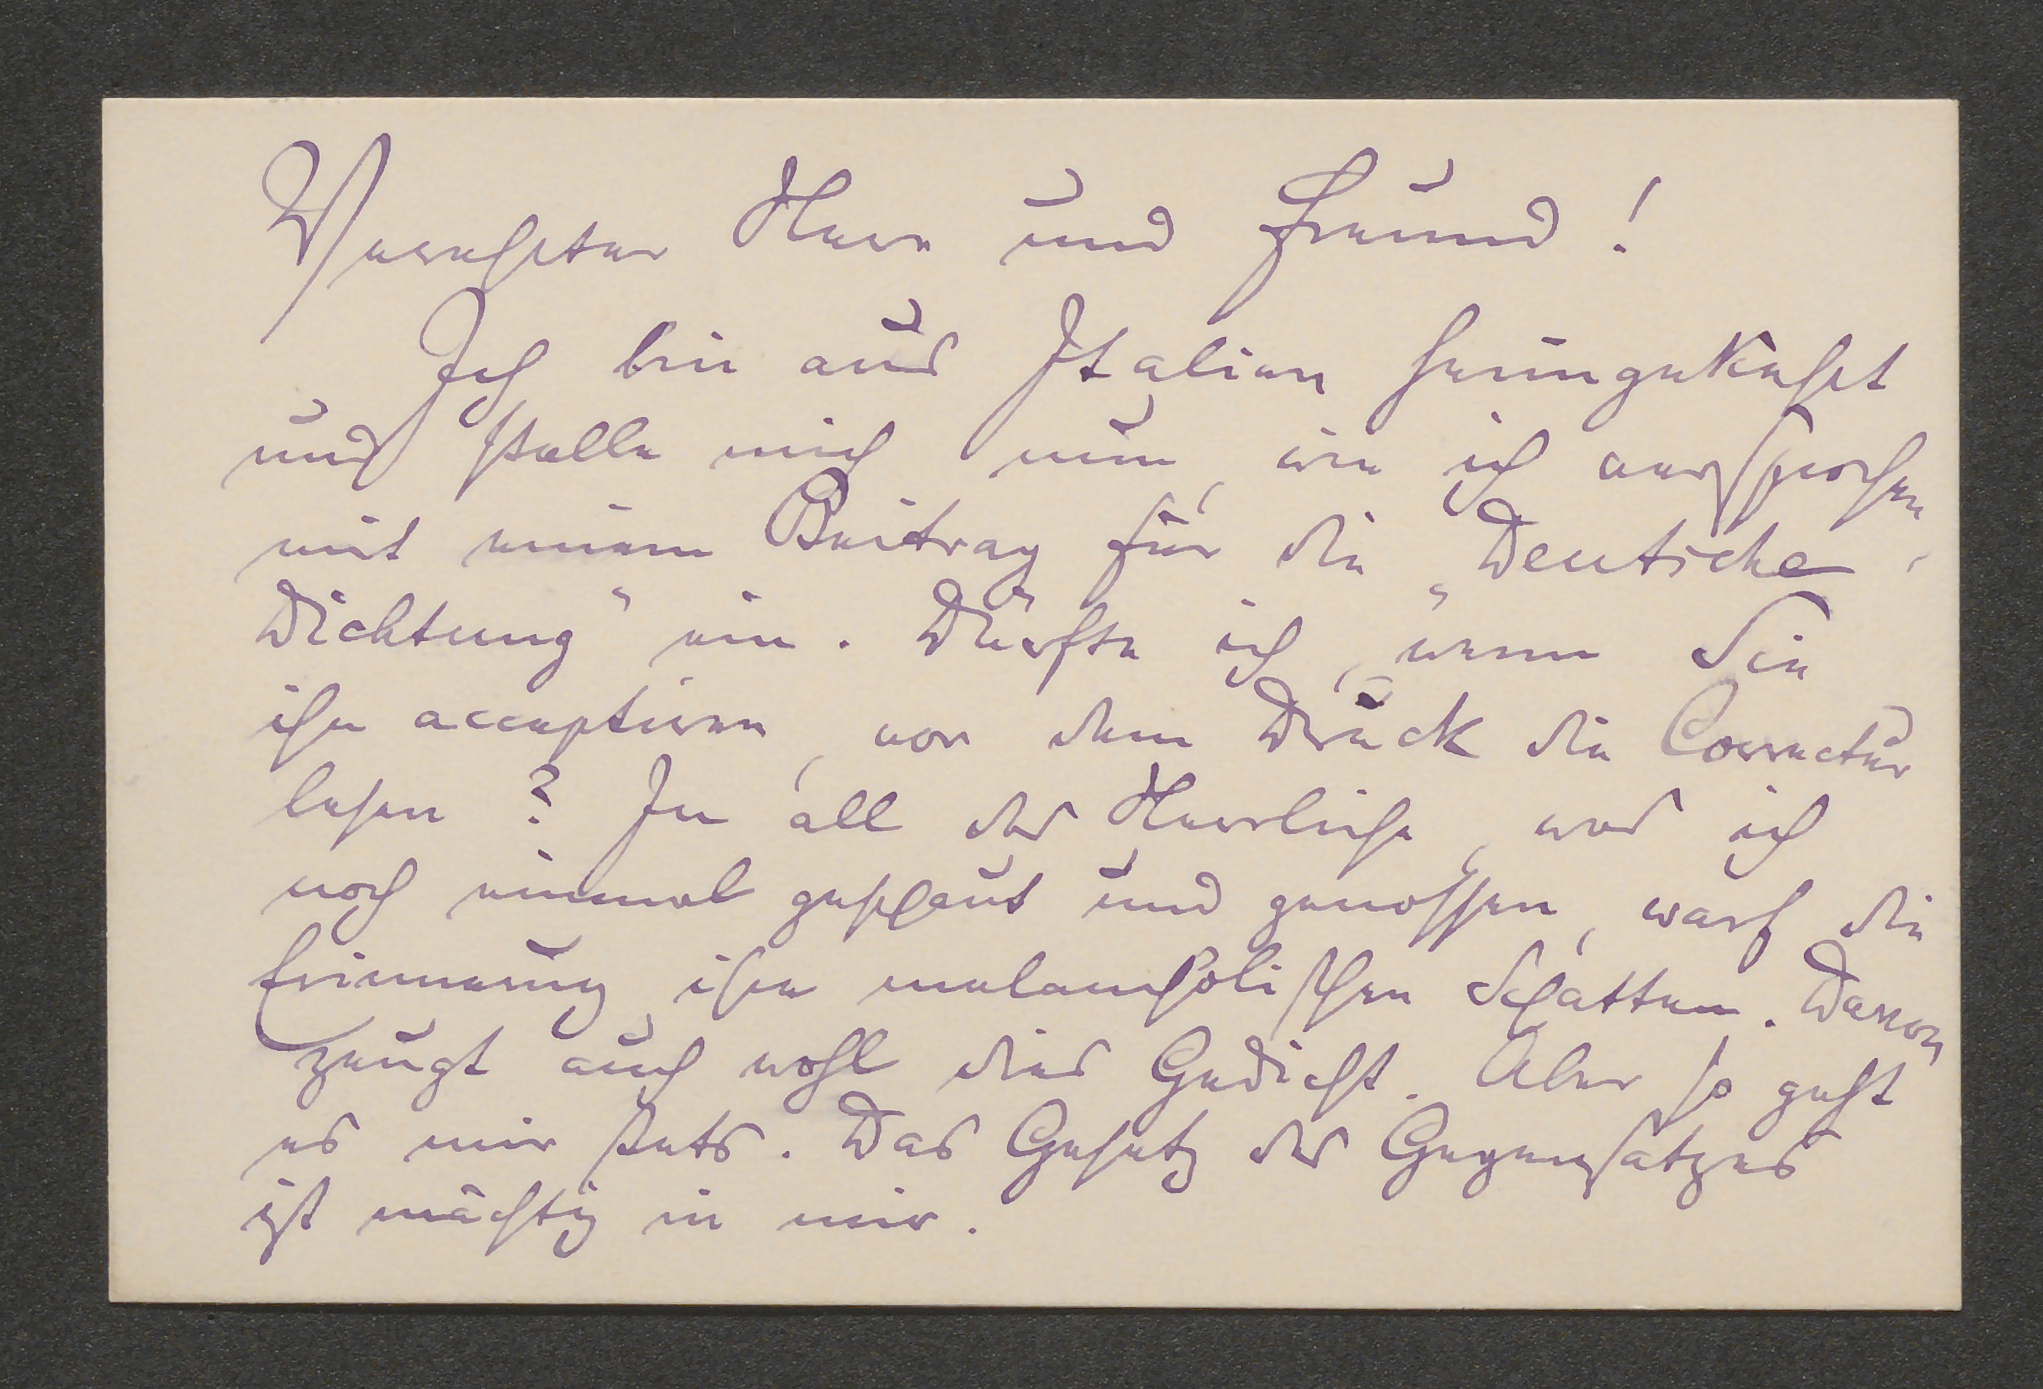 Verehrter Herr und Freund!
Ich bin aus Italien heimgekehrt
und stelle mich nun, wie ich versprochen,
mit einem Beitrag für die „Deutsche
Dichtung" ein. Dürfte ich, wenn Sie
ihn acceptiren, vor dem Druck die Correctur
lesen? In all das Herrliche, was ich
noch einmal geschaut und genossen, warf die
Erinnerung ihre melancholischen Schatten. Davon
zeugt auch wohl dies Gedicht. Aber so geht
es mir stets. Das Gesetz des Gegensatzes
ist mächtig in mir.